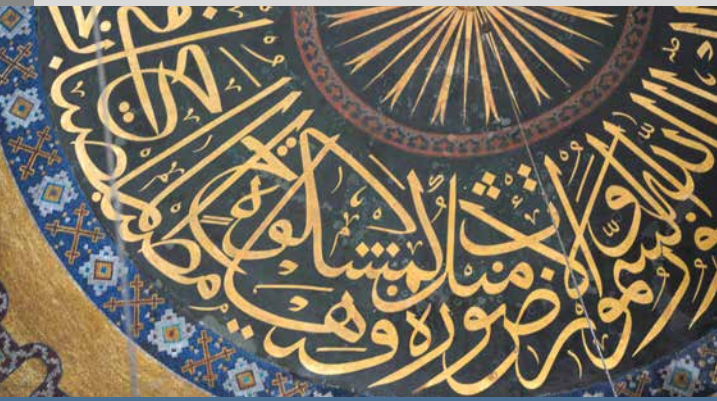 الله نور السموات والارض مثل نوره كمشكوة فيها مصباح